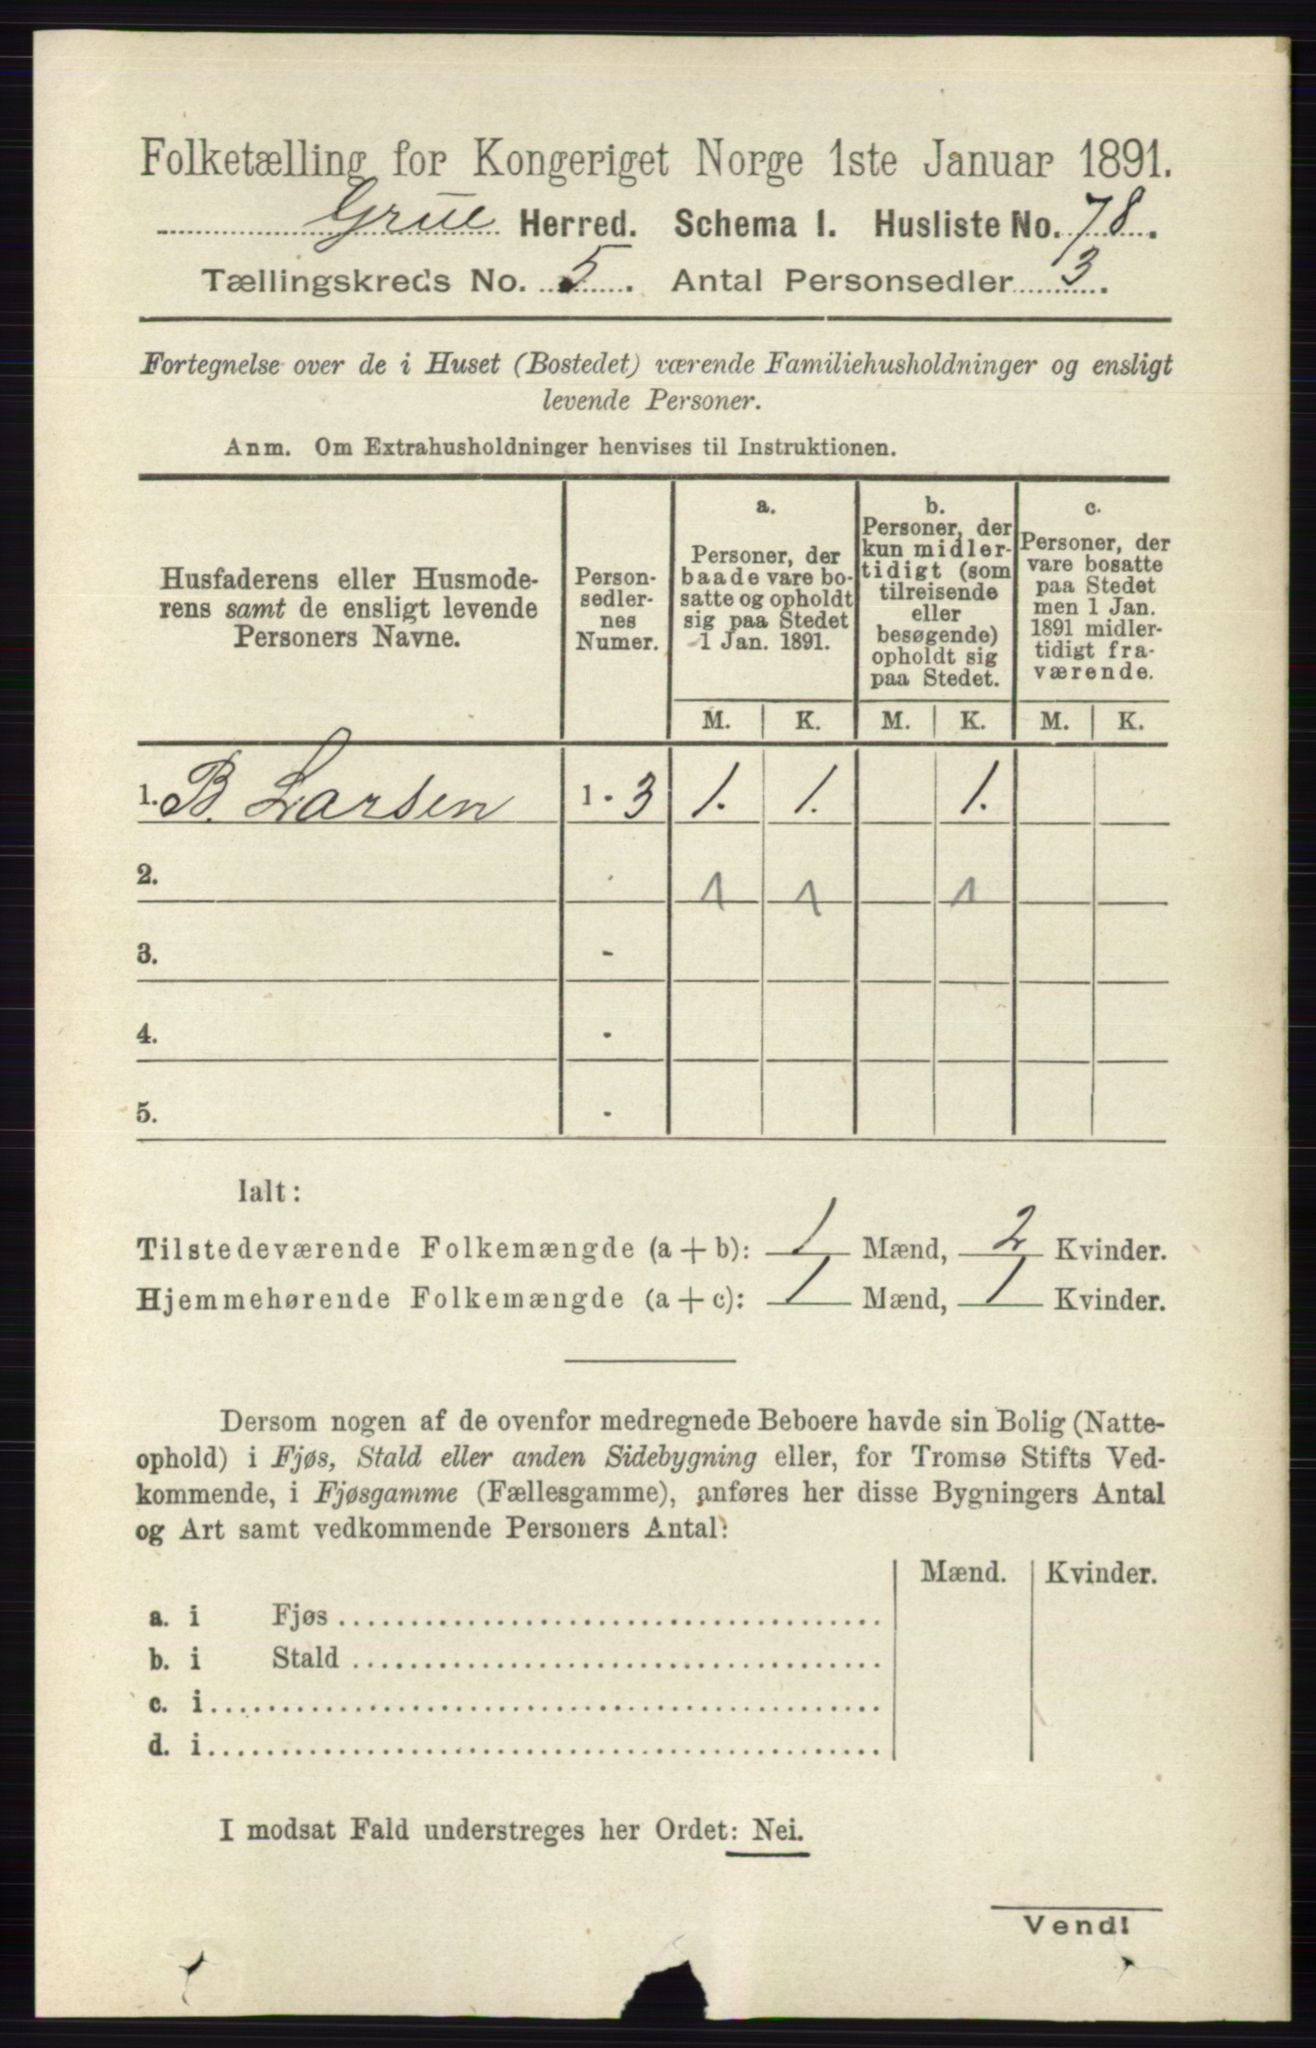 Folketælling for Kongeriget Norge 1ste Januar 1891.
Grue Herred. Schema I. Husliste No. 78.
Tællingskreds No. 5. Antal Personsedler 3.
Fortegnelse over de i Huset (Bostedet) værende Familiehusholdninger og ensligt
levende Personer.
Anm. Om Extrahusholdninger henvises til Instruktionen.
Husfaderens eller Husmode-
rens samt de ensligt levende
Personers Navne.
Person-
sedler-
nes
Numer.
a.
Personer, der
baade vare bo-
satte og opholdt
sig paa Stedet
1 Jan. 1891.
b.
Personer, der
kun midler-
tidigt (som
tilreisende
eller
besøgende)
opholdt sig
paa Stedet.
c.
Personer, der
vare bosatte
paa Stedet
men 1 Jan.
1891 midler-
tidigt fra-
værende.
M. K. M. K. M. K.
1. B. Larsen 1 - 3 1. 1. 1.
2. 1 1 1
3. -
4. -
5. -
Ialt:
Tilstedeværende Folkemængde (a + b): 1 Mænd, 2 Kvinder.
Hjemmehørende Folkemængde (a + c): 1 Mænd, 1 Kvinder.
Dersom nogen af de ovenfor medregnede Beboere havde sin Bolig (Natte-
ophold) i Fjøs, Stald eller anden Sidebygning eller, for Tromsø Stifts Ved-
kommende, i Fjøsgamme (Fællesgamme), anføres her disse Bygningers Antal
og Art samt vedkommende Personers Antal:
Mænd. Kvinder.
a. i Fjøs
b. i Stald
c. i
d. i
I modsat Fald understreges her Ordet: Nei.
Vend!